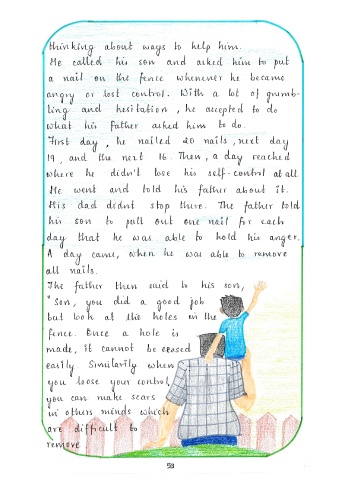 thinking about ways to help him.
He called his son and asked him to put
a nail on the fence whenever he became
angry or lost control. With a lot of grumb-
ling and hesitation, he accepted to do
what his father asked him to do.
First day, he nailed 20 nails, next day
19, and the next 16. Then, a day reached
where he didn't lose his self-control at all.
He went and told his father about it.
His dad didnt stop there. The father told
his son to pull out one nail for each
day that he was able to hold his anger.
A day came, when he was able to remove
all nails.
The father then said to his son,
"Son, you did a good job
but look at the holes in the
fence. Once a hole is
made, it cannot be erased
easily Similarily when
you loose your control,
you can make scars
in others minds which
are difficult to
remove
53